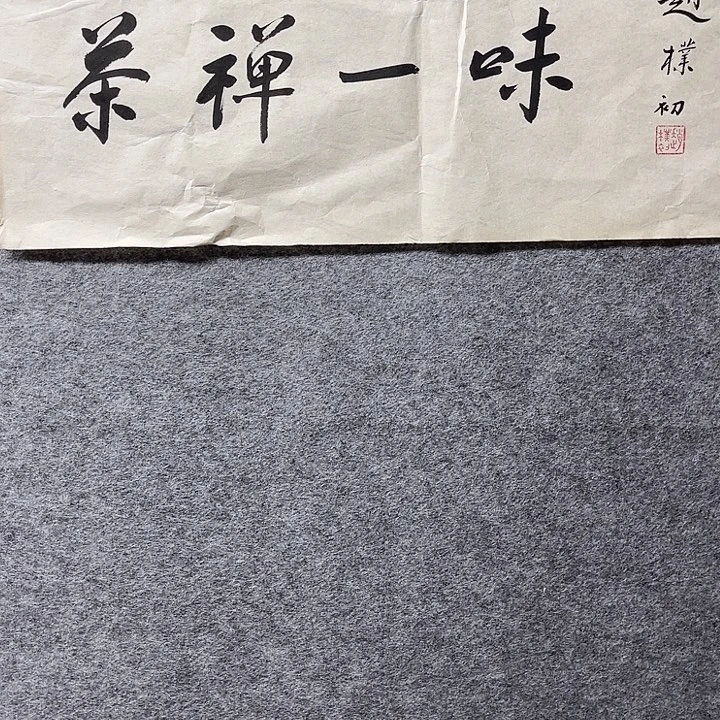 茶禅一味
趙樸初